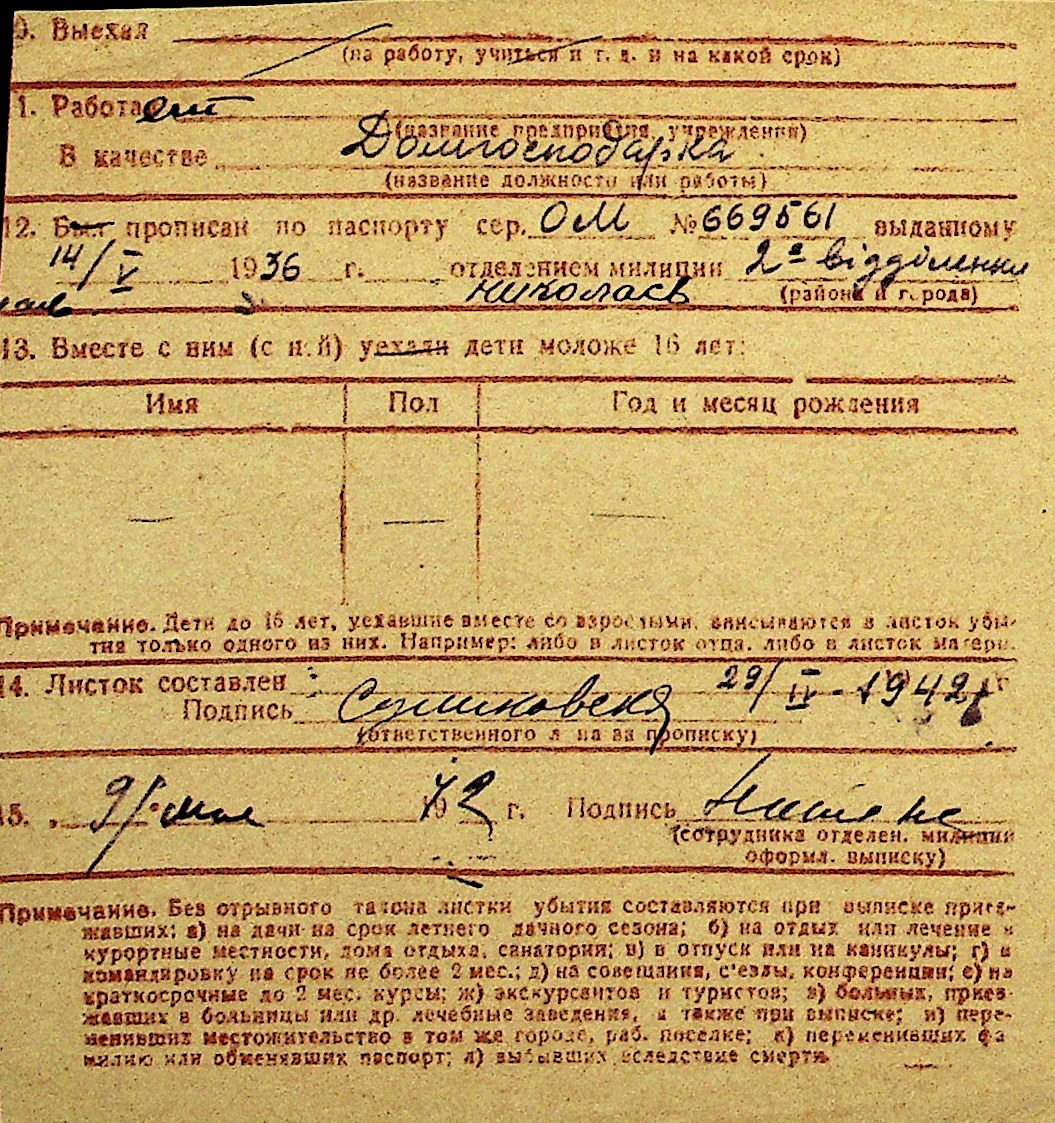 0. Выехал
(на работу, учиться и т. д. и на какой срок)
1. Работает
(название предприятия, учреждения)
В качестве Домгосподарка
(название должности или работы)
12. Был прописан по паспорту сер. ОМ № 669561 выданному
14/V 1936 г. отделением милиции 2ª відділення
Николаев (района и города)
13. Вместе с ним (с ней) уехали дети моложе 16 лет:
Имя Пол Год и месяц рождения
— — —
Примечание. Дети до 16 лет, уехавшие вместе со взрослыми, вписываются в листок убы-
тия только одного из них. Например: либо в листок отца, либо в листок матери.
14. Листок составлен 29/IV - 1942 г
Подпись
(ответственного л на за прописку)
15. 9/ мая 1942 г. Подпись
(сотрудника отделен. милиции
оформл. выписку)
Примечание. Без отрывного талона листки убытия составляются при выписке приез-
жавших: а) на дачи на срок летнего дачного сезона; б) на отдых или лечение в
курортные местности, дома отдыха, санатории; в) в отпуск или на каникулы; г) в
командировку на срок не более 2 мес.; д) на совещания, с'езды, конференции; е) на
краткосрочные до 2 мес. курсы; ж) экскурсантов и туристов; з) больных, приез-
жавших в больницы или др. лечебные заведения, а также при выписке; и) пере-
менивших местожительство в том же городе, раб. поселке; к) переменивших фа
милию или обменявших паспорт; л) выбывших вследствие смерти.